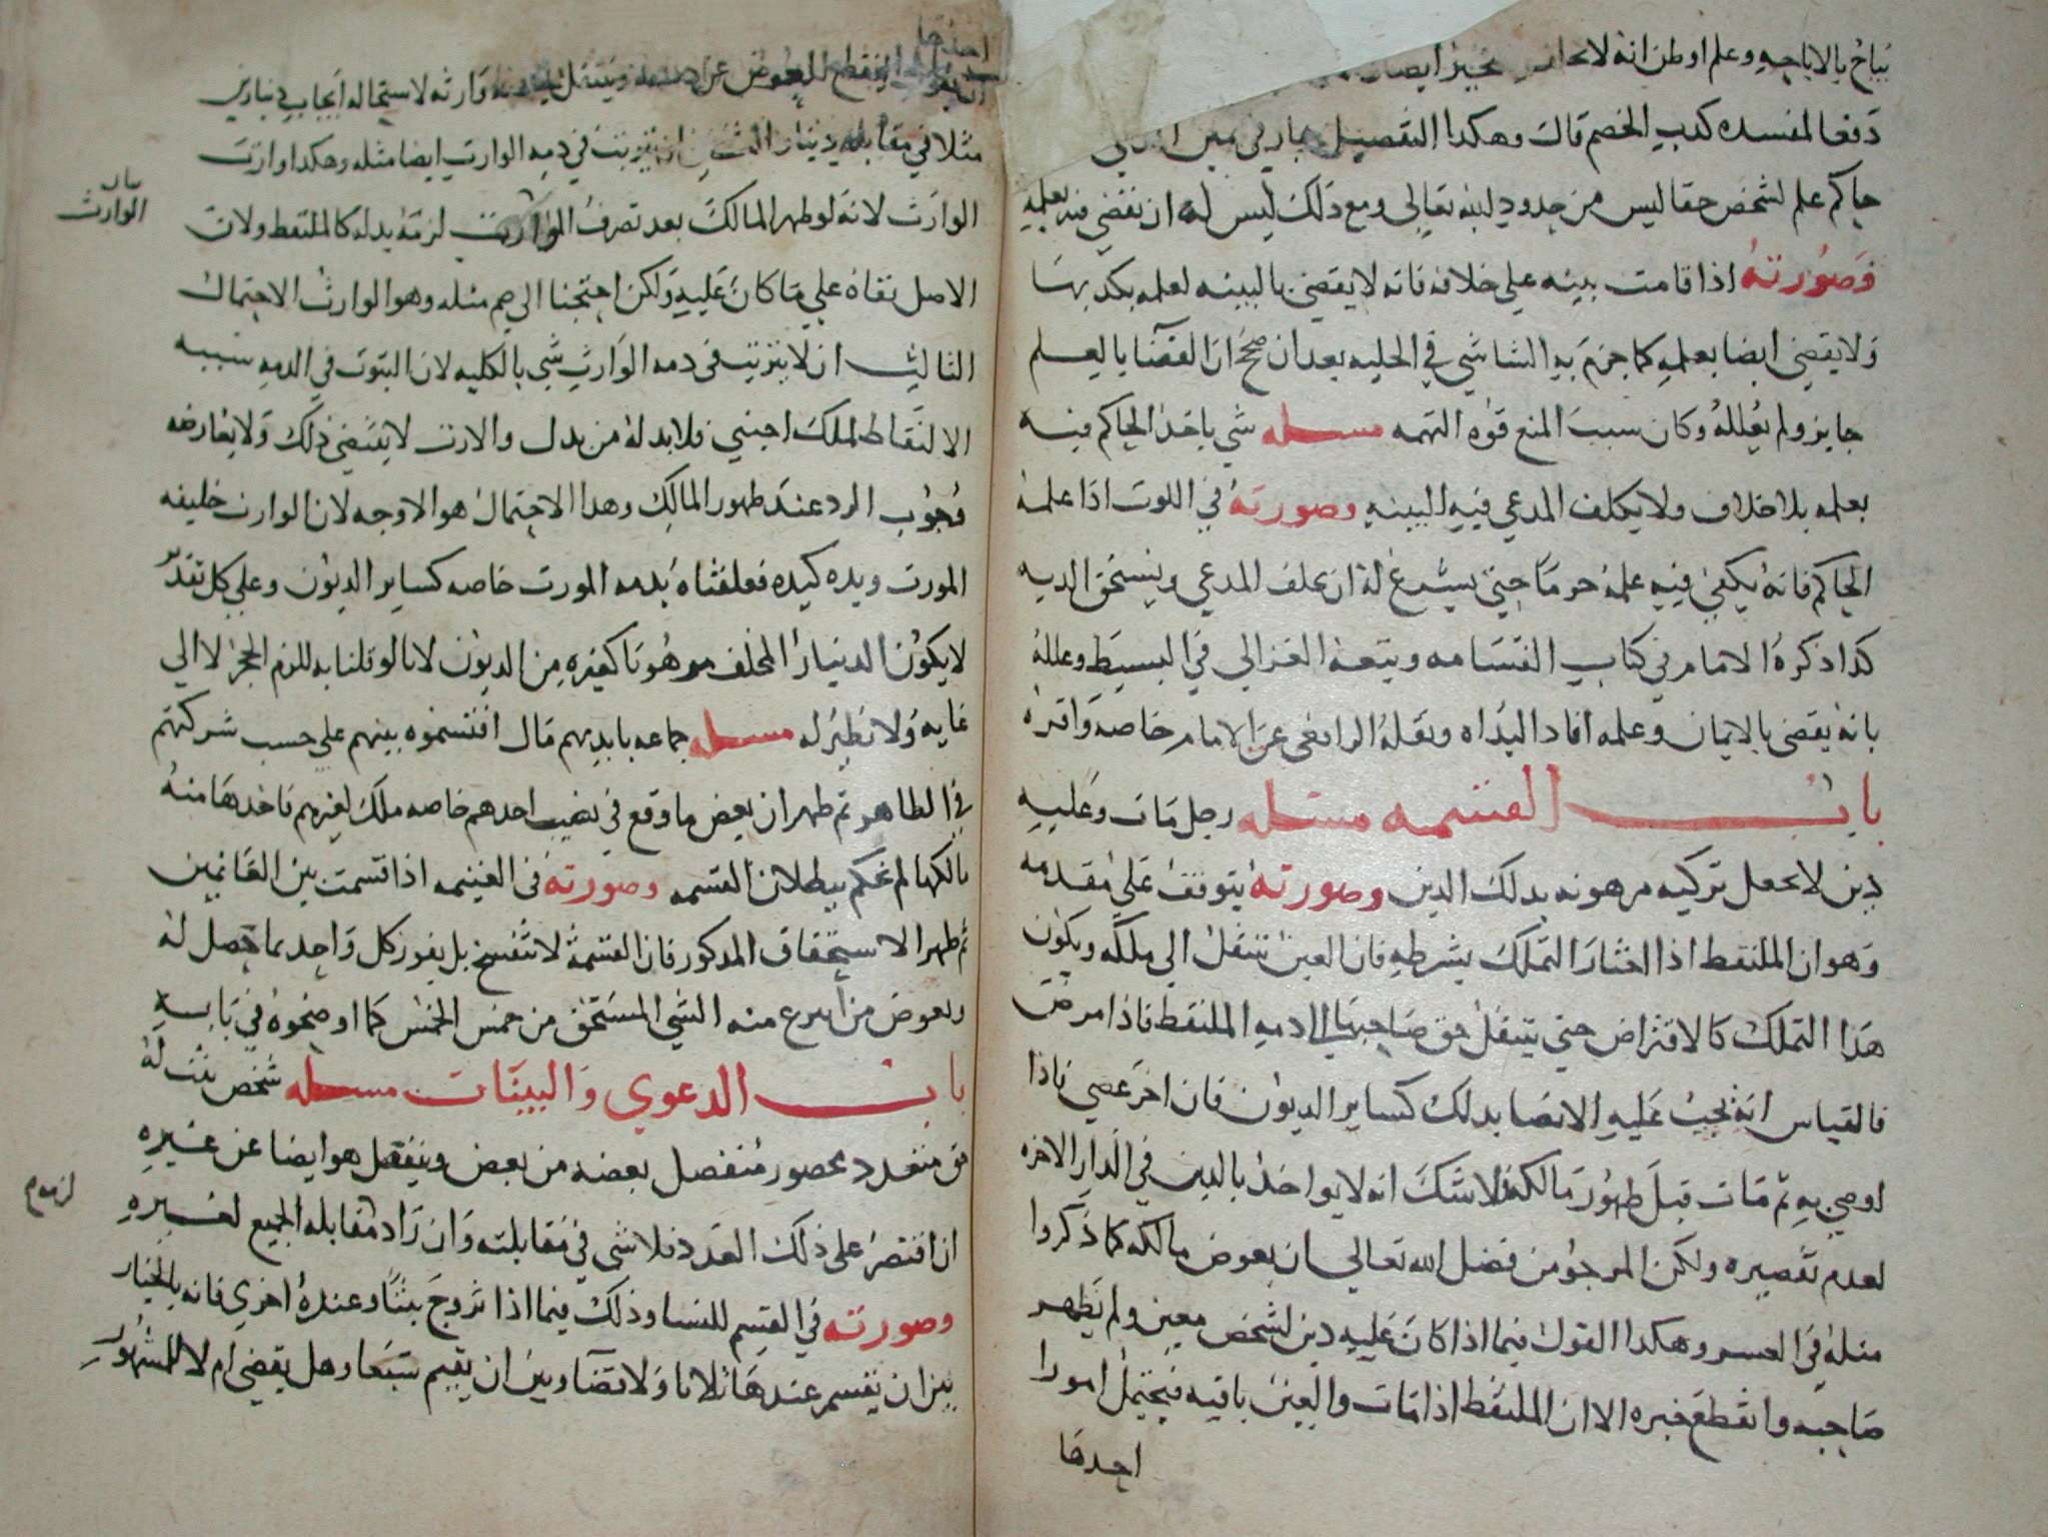 يباح بالاباحه وعلم او ظن انه لا يخاف تخييرا ايضا
دفعا لمفسده كدب الخصم قال وهكدا التفصيل
حاكم علم لشخص حقا ليس من حدود لله تعالى ومع دلك ليس له ان يقضي فيه بعلمه
وصورته اذا قامت بينه على خلافه فانه لا يقضي بالبينه لعلمه بكدبها
ولا يقضي ايضا بعلمه كما جزم به الشاشي في الحليه بعد ان صحح ان القضا بالعلم
جايز ولم يعلله وكان سبب المنع قوه التهمه مسله شي ياخد الحاكم فيه
بعلمه بلا خلاف ولا يكلف المدعي فيه البينه وصورته في اللوث اذا علمه
الحاكم فانه يكفي فيه علمه جزما حتى يسوغ له ان يحلف المدعي ويستحق الديه
كدا ذكره الامام في كتاب القسامه وتبعه الغزالي في البسيط وعلله
بانه يقضي بالايمان وعلمه افاد البداه ونقله الرافعي عن الامام خاصه واقره
باب القسمه مسله رجل مات وعليه
دين لا تجعل تركته مرهونه بدلك الدين وصورته يتوقف على مقدمه
وهو ان الملتقط اذا اختار التملك بشرطه فان العين تنتقل الى ملكه ويكون
هدا التملك كالاقتراض حتى ينتقل حق صاحبها الى ذمه الملتقط فاذا مرض
فالقياس انه يجب عليه الايصا بدلك كساير الديون فان اخر عصي فاذا
اوصي به ثم مات قبل ظهور مالكه فلا شك انه لا يواخذ بالدين في الدار الاخره
لعدم تقصيره ولكن المرجو من فضل الله تعالى ان يعوض مالكه كما ذكروا
مثله في المعسر وهكدا القول فيما اذا كان عليه دين لشخص معين ولم يظهر
صاحبه وانقطع خبره الا ان الملتقط اذا مات والعين باقيه فيحتمل امورا
احدها
احدها
ان ينقطع العوض عن ذمته وينتقل الى ذمه وارثه لاستحاله ايجاب دينارين
مثلا في مقابله دينار الثاني ان يترتب في ذمه الوارث ايضا مثله وهكدا وارث
الوارث لانه لو ظهر المالك بعد تصرف الوارث لزمه بدله كالملتقط ولان
بيان
الوارث
الاصل بقاه على ما كان عليه ولكن احتجنا الى ضم مثله وهو الوارث الاحتمال
الثالث ان لا يترتب في دمه الوارث شي بالكليه لان الثبوت في الدمه سببه
الالتقاط لملك اجنبي فلا بد له من بدل والارث لا يقتضي ذلك ولا يعارضه
وجوب الرد عند ظهور المالك وهدا الاحتمال هو الاوجه لان الوارث خليفه
المورث ويده كيده فعلقناه بدمه المورث خاصه كساير الديون وعلى كل تقدير
لا يكون الدينار المخلف مرهونا كغيره من الديون لانا لو قلنا به للزم الحجر لا الى
غايه ولا نظير له مسله جماعه بايديهم مال اقتسموه بينهم على حسب شركتهم
في الظاهر ثم ظهر ان بعض ما وقع في نصيب احدهم خاصه ملك لغيرهم فاخدها منه
مالكها لم نحكم ببطلان القسمه وصورته في الغنيمه اذا قسمت بين الغانمين
ثم ظهر الاستحقاق المدكور فان القسمه لا تنفسخ بل يفوز كل واحد بما حصل له
ويعوض من انتزع منه الشي المستحق من خمس الخمس كما اوضحوه في بابه
باب الدعوي والبينات مسله شخص يثبت له
حق متعدد محصور منفصل بعضه من بعض وينفصل هو ايضا عن غيره
ان اقتصر على ذلك العدد فلا شي في مقابلته وان زاد مقابله الجميع لغيره
لزم
وصورته في القسم للنسا وذلك فيما اذا تزوج بثيبا وعنده اخري فانه بالخيار
بين ان يقسم عندها ثلاثا ولا قضا وبين ان يقيم سبعا وهل يقضي ام لا المشهور